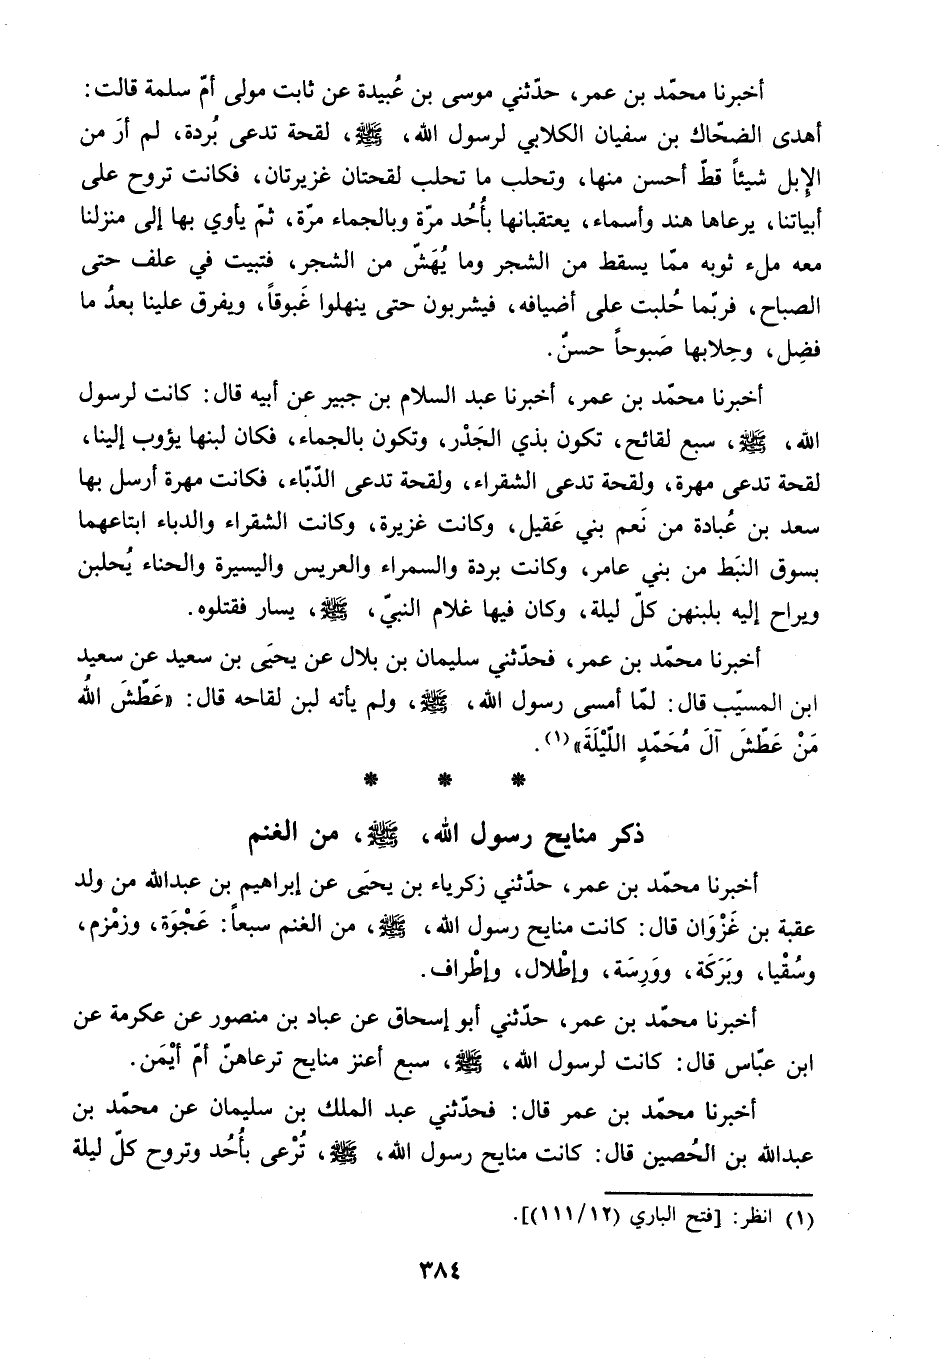 أخبرنا محمّد بن عمر، حدّثني موسى بن عُبيدة عن ثابت مولى أمّ سلمة قالت:
أهدى الضحّاك بن سفيان الكلابي لرسول الله، ﷺ، لقحة تدعى بُردة، لم أرَ من
الإبل شيئاً قطّ أحسن منها، وتحلب ما تحلب لقحتان غزيرتان، فكانت تروح على
أبياتنا، يرعاها هند وأسماء، يعتقبانها بأُحُد مرّة وبالجماء مرّة، ثمّ يأوي بها إلى منزلنا
معه ملء ثوبه ممّا يسقط من الشجر وما يُهَشّ من الشجر، فتبيت في علف حتى
الصباح، فربّما حُلبت على أضيافه، فيشربون حتى ينهلوا غَبوقاً، ويفرق علينا بعدُ ما
فضِل، وحِلابها صَبوحاً حسنٌ.
أخبرنا محمّد بن عمر، أخبرنا عبد السلام بن جبير عن أبيه قال: كانت لرسول
الله، ﷺ، سبع لقائح، تكون بذي الجَدْر، وتكون بالجماء، فكان لبنها يؤوب إلينا،
لقحة تدعى مهرة، ولقحة تدعى الشقراء، ولقحة تدعى الدّبّاء، فكانت مهرة أرسل بها
سعد بن عُبادة من نَعم بني عَقيل، وكانت غزيرة، وكانت الشقراء والدباء ابتاعهما
بسوق النبَط من بني عامر، وكانت بردة والسمراء والعريس واليسيرة والحناء يُحلبن
ويراح إليه بلبنهن كلّ ليلة، وكان فيها غلام النبيّ، ﷺ، يسار فقتلوه.
أخبرنا محمّد بن عمر، فحدّثني سليمان بن بلال عن يحيَى بن سعيد عن سعيد
ابن المسيّب قال: لمّا أمسى رسول الله، ﷺ، ولم يأته لبن لقاحه قال: «عَطّشَ اللهُ
مَنْ عَطّشَ آلَ مُحَمّدٍ اللّيْلَةَ»(١).
* * *
ذكر منايح رسول الله، ﷺ، من الغنم
أخبرنا محمّد بن عمر، حدّثني زكرياء بن يحيَى عن إبراهيم بن عبدالله من ولد
عقبة بن غَزْوَان قال: كانت منايح رسول الله، ﷺ، من الغنم سبعاً: عَجْوَة، وزمْزم،
وسُقْيا، وبَرَكَة، ووَرِسَة، وإطْلال، وإطْراف.
أخبرنا محمّد بن عمر، حدّثني أبو إسحاق عن عباد بن منصور عن عكرمة عن
ابن عبّاس قال: كانت لرسول الله، ﷺ، سبع أعنز منايح ترعاهنّ أمّ أيْمَن.
أخبرنا محمّد بن عمر قال: فحدّثني عبد الملك بن سليمان عن محمّد بن
عبدالله بن الحُصين قال: كانت منايح رسول الله، ﷺ، تُرْعى بأُحُد وتروح كلّ ليلة
(١) انظر: [فتح الباري (١١١/١٢)].
٣٨٤